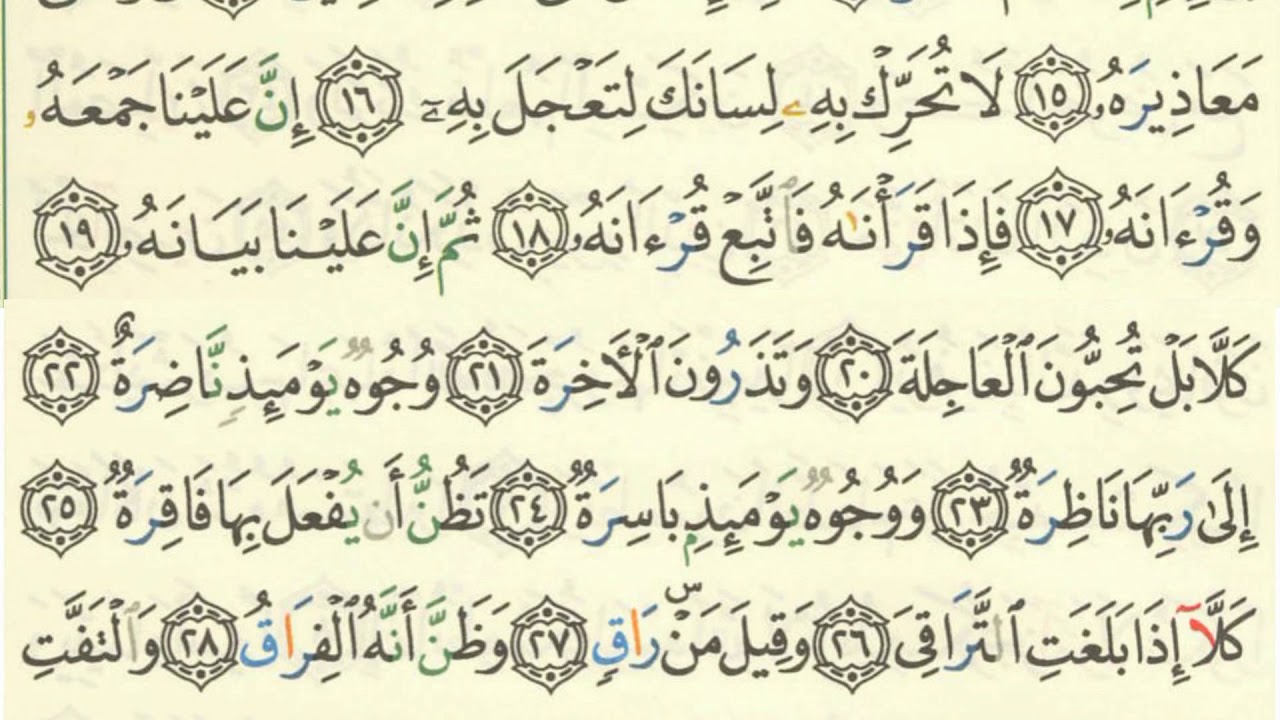 مَعَاذِيرَهُۥ ١٥ لَا تُحَرِّكْ بِهِۦ لِسَانَكَ لِتَعْجَلَ بِهِۦٓ ١٦ إِنَّ عَلَيْنَا جَمْعَهُۥ
وَقُرْءَانَهُۥ ١٧ فَإِذَا قَرَأْنَٰهُ فَٱتَّبِعْ قُرْءَانَهُۥ ١٨ ثُمَّ إِنَّ عَلَيْنَا بَيَانَهُۥ ١٩
كَلَّا بَلْ تُحِبُّونَ ٱلْعَاجِلَةَ ٢٠ وَتَذَرُونَ ٱلْأَخِرَةَ ٢١ وُجُوهٌ يَوْمَئِذٍ نَّاضِرَةٌ ٢٢
إِلَىٰ رَبِّهَا نَاظِرَةٌ ٢٣ وَوُجُوهٌ يَوْمَئِذٍۭ بَاسِرَةٌ ٢٤ تَظُنُّ أَن يُفْعَلَ بِهَا فَاقِرَةٌ ٢٥
كَلَّآ إِذَا بَلَغَتِ ٱلتَّرَاقِىَ ٢٦ وَقِيلَ مَنْۜ رَاقٍ ٢٧ وَظَنَّ أَنَّهُ ٱلْفِرَاقُ ٢٨ وَٱلْتَفَّتِ